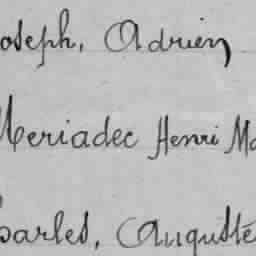 oseph, Adrien
Meriadec Henri Ma
Charles, Auguste